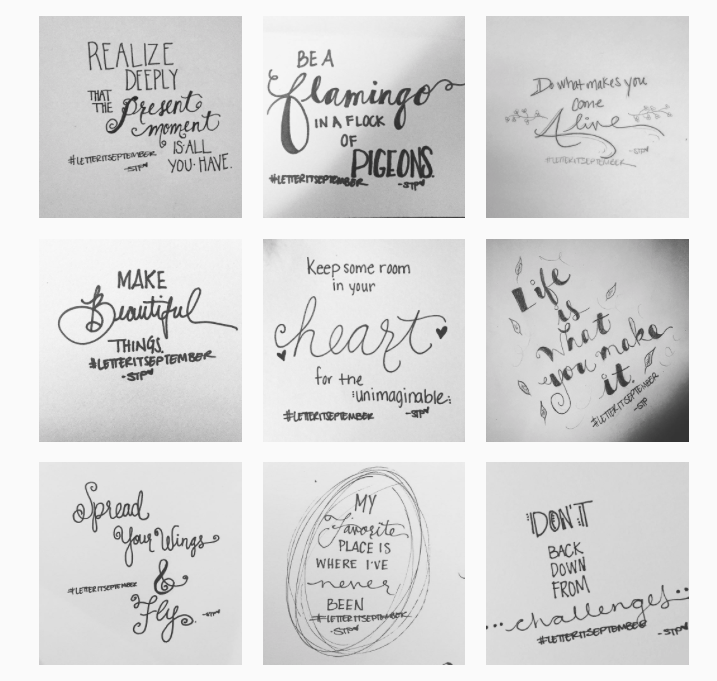 REALIZE
DEEPLY
THAT
THE Present
moment
IS·ALL
YOU·HAVE.
#LETTERITSEPTEMBER
-STP
BE A
flamingo
IN A FLOCK
OF
PIGEONS.
#LETTERITSEPTEMBER
-STP
Do what makes you
come
Alive
-STP
#LETTERITSEPTEMBER
MAKE
Beautiful
THINGS.
#LETTERITSEPTEMBER
-STP
Keep some room
in your
heart
for the
unimaginable
#LETTERITSEPTEMBER
-STP
Life
is
what
you make
it.
#LETTERITSEPTEMBER
-STP
Spread
Your Wings
&
#LETTERITSEPTEMBER
Fly
-STP
MY
Favorite
PLACE IS
WHERE I'VE
never
BEEN
#LETTERITSEPTEMBER
-STP
DON'T
BACK
DOWN
FROM
...challenges...
#LETTERITSEPTEMBER
-STP